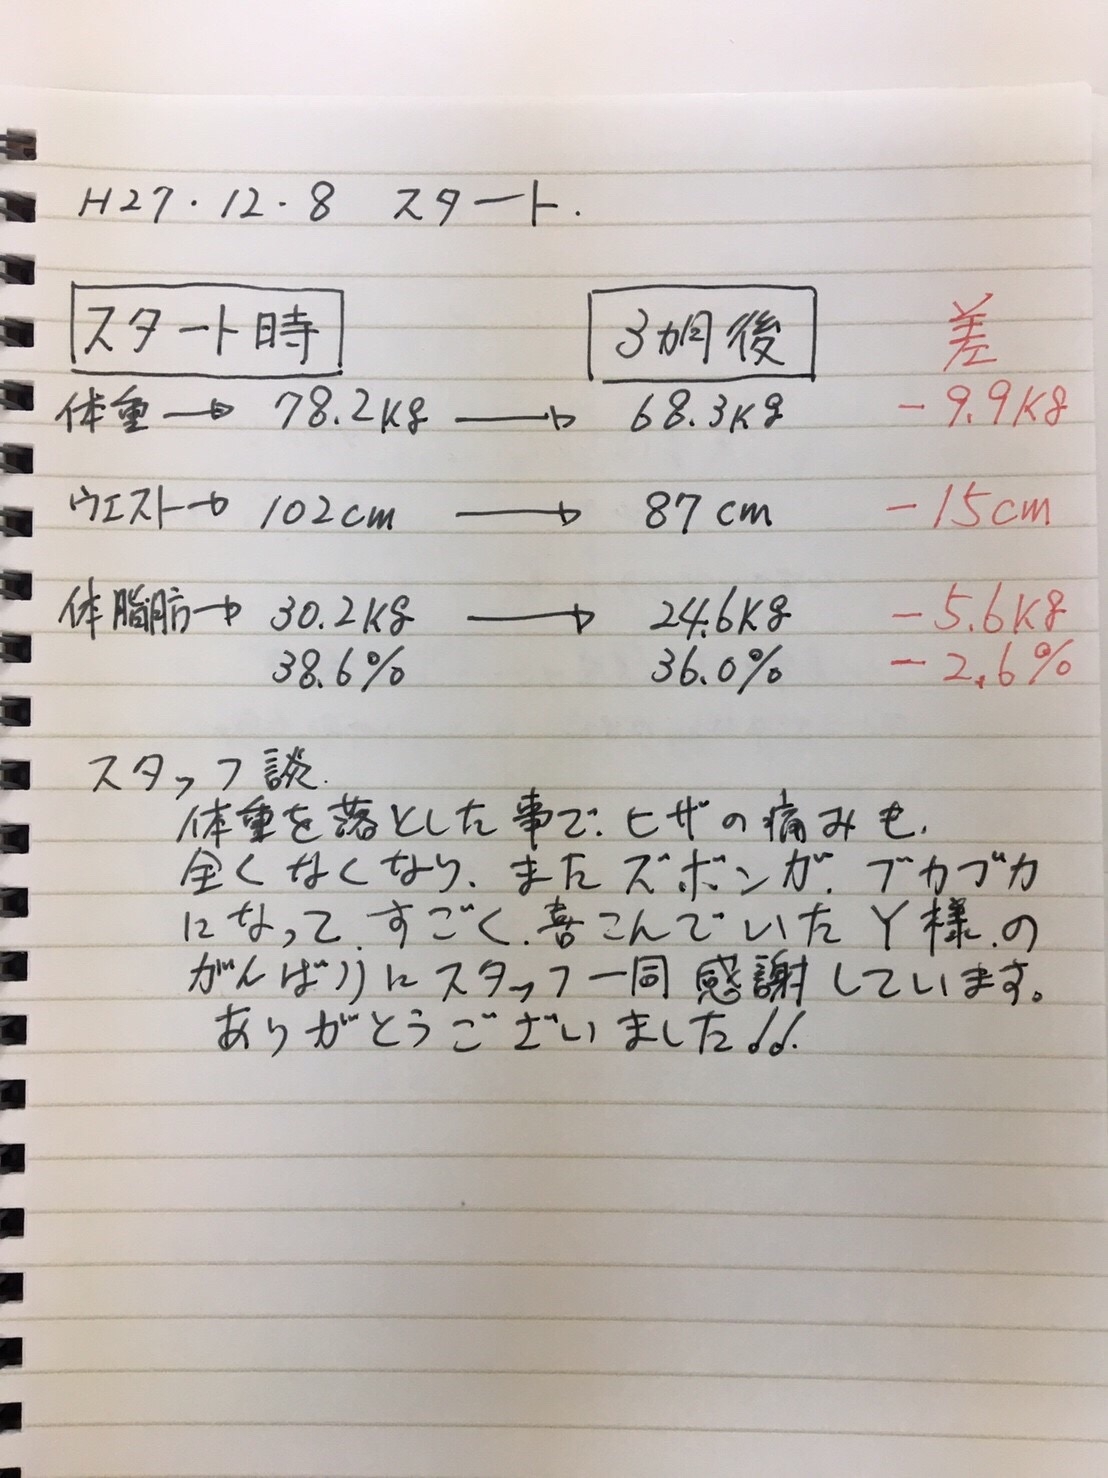 H27.12.8 スタート.
スタート時 3カ月後 差
体重→ 78.2kg → 68.3kg -9.9kg
ウエスト→ 102cm → 87cm -15cm
体脂肪→ 30.2kg → 24.6kg -5.6kg
38.6% 36.0% -2.6%
スタッフ談.
体重を落とした事で、ヒザの痛みも、
全くなくなり、またズボンが、ブカブカ
になって、すごく、喜こんでいたY様、の
がんばりにスタッフ一同感謝しています。
ありがとうございました!!